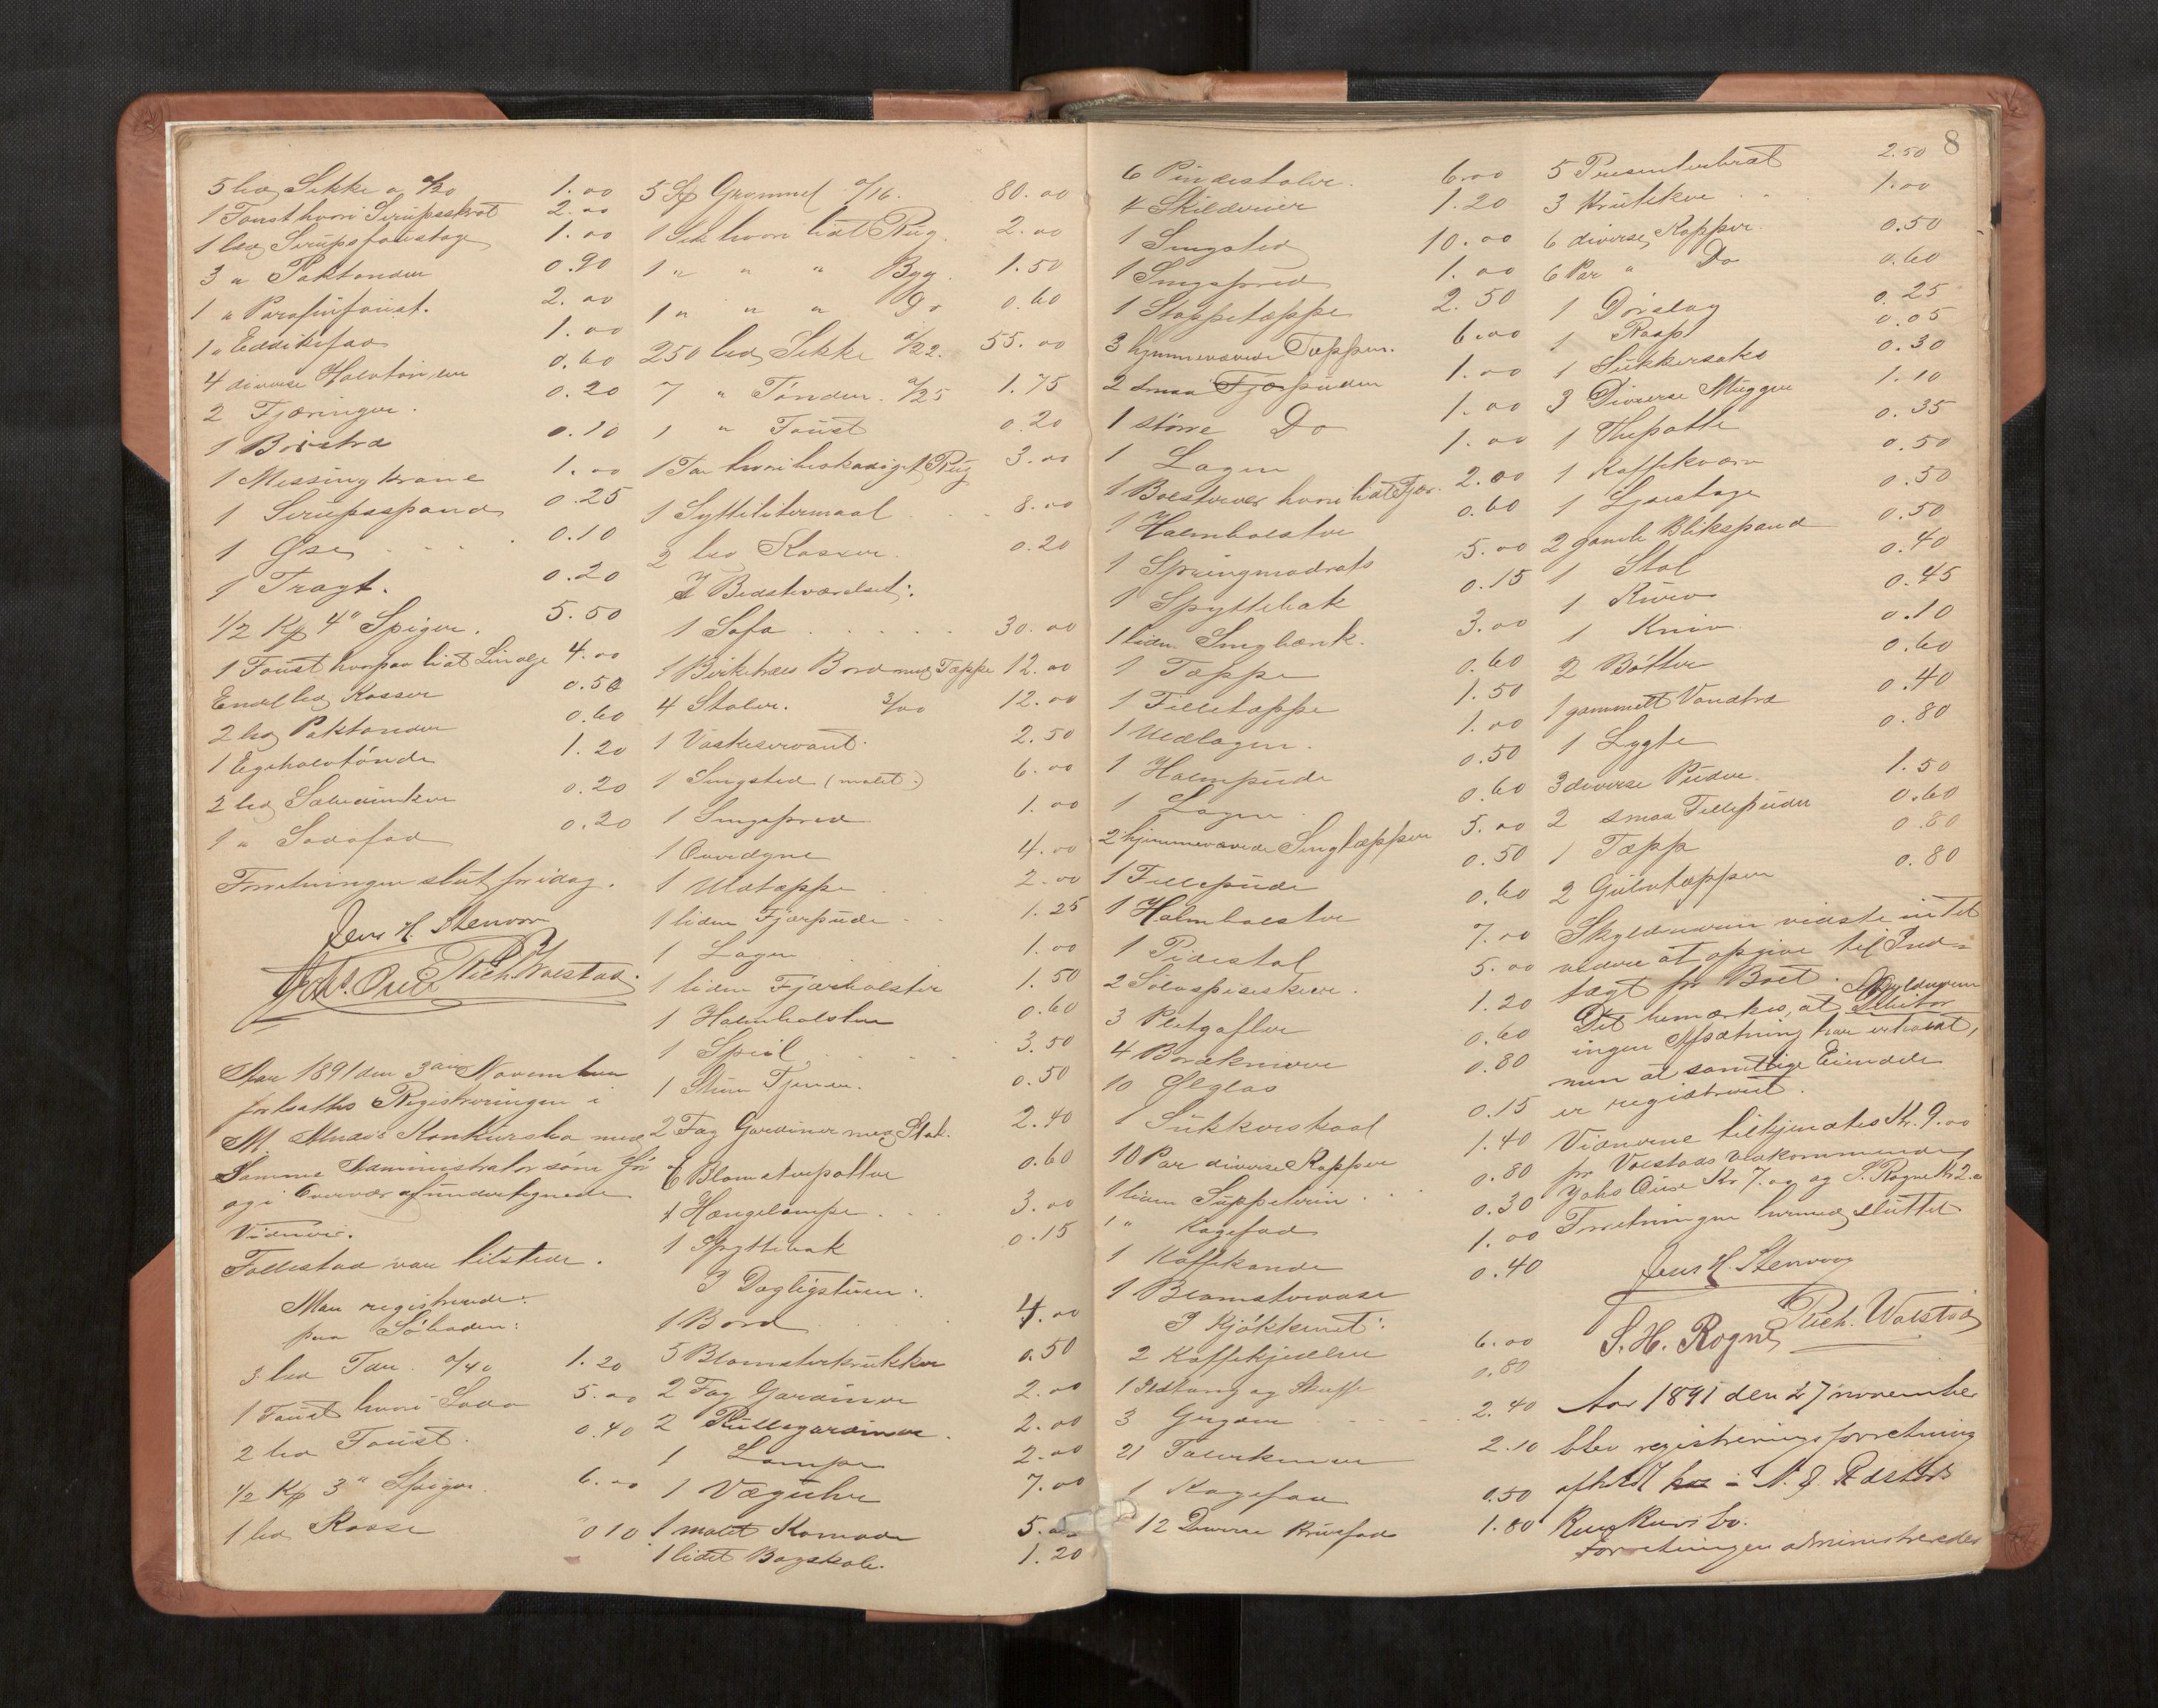 5 led Sække a 0/20 1.00
1 Foust hvori Sirupsskrot 2.00
1 led Sirupsfoustage 1.00
3 " Paktønder 0.90
1 " Parafinfoust. 2.00
1 " Eddikefad 1.00
4 diverse Halvtønder 0.60
2 Fjæringer. 0.20
1 Bøistræ 0.10
1 Messingkrane 1.00
1 Sirupsspand 0.25
1 Øse 0.10
1 Tragt. 0.20
1/2 Kp 4" Spiger. 5.50
1 Foust hvorpaa lidt Linolje 4.00
Endel led Kasser 0.50
2 led Paktønder 0.60
1 Egehalvtønde 1.20
2 led Salvedunker 0.20
1 " Sodafad 0.20
Forretningen slut for idag.
Jens H. Stenvaag
Johs. Ouse Rich. Walstad.
Aar 1891 den 3die November
fortsattes Registreringen i
M. Konkursbo med
Samme Administrator som før
og i Overvær af undertegnede
Vidner.
Follestad var tilstede.
Man registrerede:
paa Søboden:
3 led Tdr. 0/40 1.20
1 Foust hvori Soda 5.00
2 led Foust. 0.40
1/2 Kp 3" Spiger. 6.00
1 led Kasse 0.10
5 Grømmel 0/16. 80.00
1 Sæk hvori lidt Rug. 2.00
1 " " " Byg. 1.50
1 " " " Do 0.60
250 led Sække 0/22. 55.00
7 " Tønder. 0/25 1.75
1 " Foust 0.20
1 Tde hvori beskadiget Rug 3.00
1 Syttilitermaal 8.00
2 led Kasser. 0.20
I Bedsteværelset:
1 Sofa 30.00
1 Birketræs Bord med Tæppe 12.00
4 Stoler. 3/00 12.00
1 Vaskeservant. 2.50
1 Sengsted (malet) 6.00
1 Sengspred 1.00
1 Overdyne 4.00
1 Uldtæppe 2.00
1 liden Fjærpude 1.25
1 Lagen 1.00
1 liden Fjærbolster 1.50
1 Halmbolster 0.60
1 Speil 3.50
1 Stum Tjener. 0.50
2 Fag Gardiner med Stok. 2.40
6 Blomsterpotter 0.60
1 Hængelampe 3.00
1 Spyttebak 0.15
I Dagligstuen:
1 Bord 4.00
5 Blomsterkrukker 0.50
2 Fag Gardiner 2.00
2 Rullegardiner. 2.00
1 Lampe 2.00
1 Vægguhr 7.00
1 malet Komode 5.00
1 lidet Bogskab. 1.20
8
6 Pindestoler. 6.00
4 Skilderier 1.20
1 Sengsted 10.00
1 Sengspred 1.00
1 Stoppetæppe 2.50
3 hjemmevævede Tæpper. 6.00
2 smaa Fjærpuder 1.00
1 større Do 1.00
1 Lagen 1.00
1 Bolstervar hvori lidt Fjær. 2.00
1 Halmbolster 0.60
1 Springmadrats 5.00
1 Spyttebak 0.15
1 liden Sengbænk. 3.00
1 Tæppe 0.60
1 Filletæppe 1.50
1 Uldlagen. 1.00
1 Halmpude 0.50
1 Lagen. 0.60
2 hjemmevævede Sengtæpper 5.00
1 Fillepude 0.50
1 Halmbolster 0.60
1 Pidestal 7.00
2 Sølvspiseskeer. 5.00
3 Pletgafler 1.20
4 Bordkniver 0.60
10 Ølglas 0.80
1 Sukkerskaal 0.15
10 Par diverse Kopper 1.40
1 liden Suppeterin 0.80
1 " Kagefad 0.30
1 Kaffekande 1.00
1 Blomstervase 0.40
I Kjøkkenet:
2 Kaffekjedler 6.00
1 Ildtang og Skuffe 0.80
3 Gryder 2.40
21 Talerkener 2.10
1 Kagefad 0.50
12 Diverse Brusfad 1.80
5 Presenterbræt 2.50
3 Krukker 1.00
6 diverse Kopper. 0.50
6 Par " Do 0.60
1 Dørslag 0.25
1 Rasp 0.05
1 Sukkersaks 0.30
3 Diverse Mugger 1.10
1 Thepotte 0.35
1 Kaffekværn 0.50
1 Lysestage 0.50
2 gamle Blikspand 0.50
1 Stol 0.40
1 Kurv 0.45
1 Kniv 0.10
2 Bøtter 0.60
1 gammelt Vandtræ 0.40
1 Lygte 0.80
3 diverse Puder. 1.50
2 smaa Fillepuder 0.60
1 Tæppe 0.80
2 Gulvtæpper 0.80
Skyldneren vidste intet
videre at opgive til Ind-
tægt for Boet.
Det bemærkes, at Skyldneren
ingen Opsætning har erholdt,
men at samtlige Eiendele
er registreret.
Vidnerne tilkjendtes Kr. 9.00
for Volstads Vedkommende,
Johs Ouse Kr 7.00 og S. Rogne Kr 2.00
Forretningen hermed sluttet
Jens H. Stenvaag
Rich. Walstad
S. H. Rogne
Aar 1891 den 27 november
blev registreringsforretning
afholdt i N. J.
Konkursbo.
Forretningen administreredes